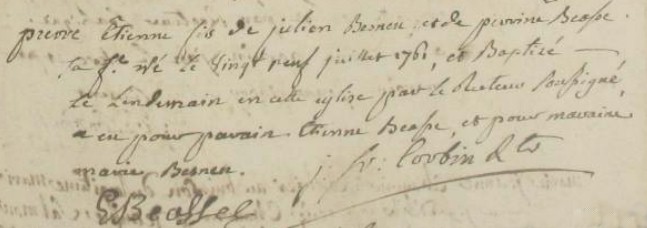 pierre Etienne fis de julien Besneu, et de perrine Beasse
sa fe. né Le vingt neuf juillet 1761, et Baptizé
Le Lendemain en cette eglise par le Recteur soussigné,
a eu pour parain Etienne Beasse, et pour maraine
marie Besneu.
Corbin
E: Beassel